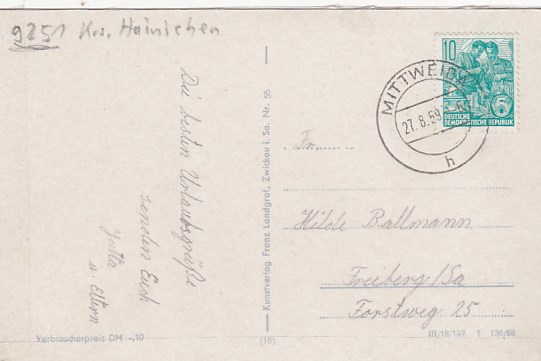 9251 Krs. Hainichen
Die besten Urlaubsgrüße
senden Euch
Jutta
u. Eltern
Verbraucherpreis DM -,10
Kunstverlag Franz Landgraf, Zwickau i. Sa. Nr. 56
(15)
10
DEUTSCHE
DEMOKRATISCHE REPUBLIK
5
MITTWEIDA
27.8.59
h
Fm.
Hilde Ballmann
Freiberg/Sa
Forstweg 25
III/18/197 1 126/58